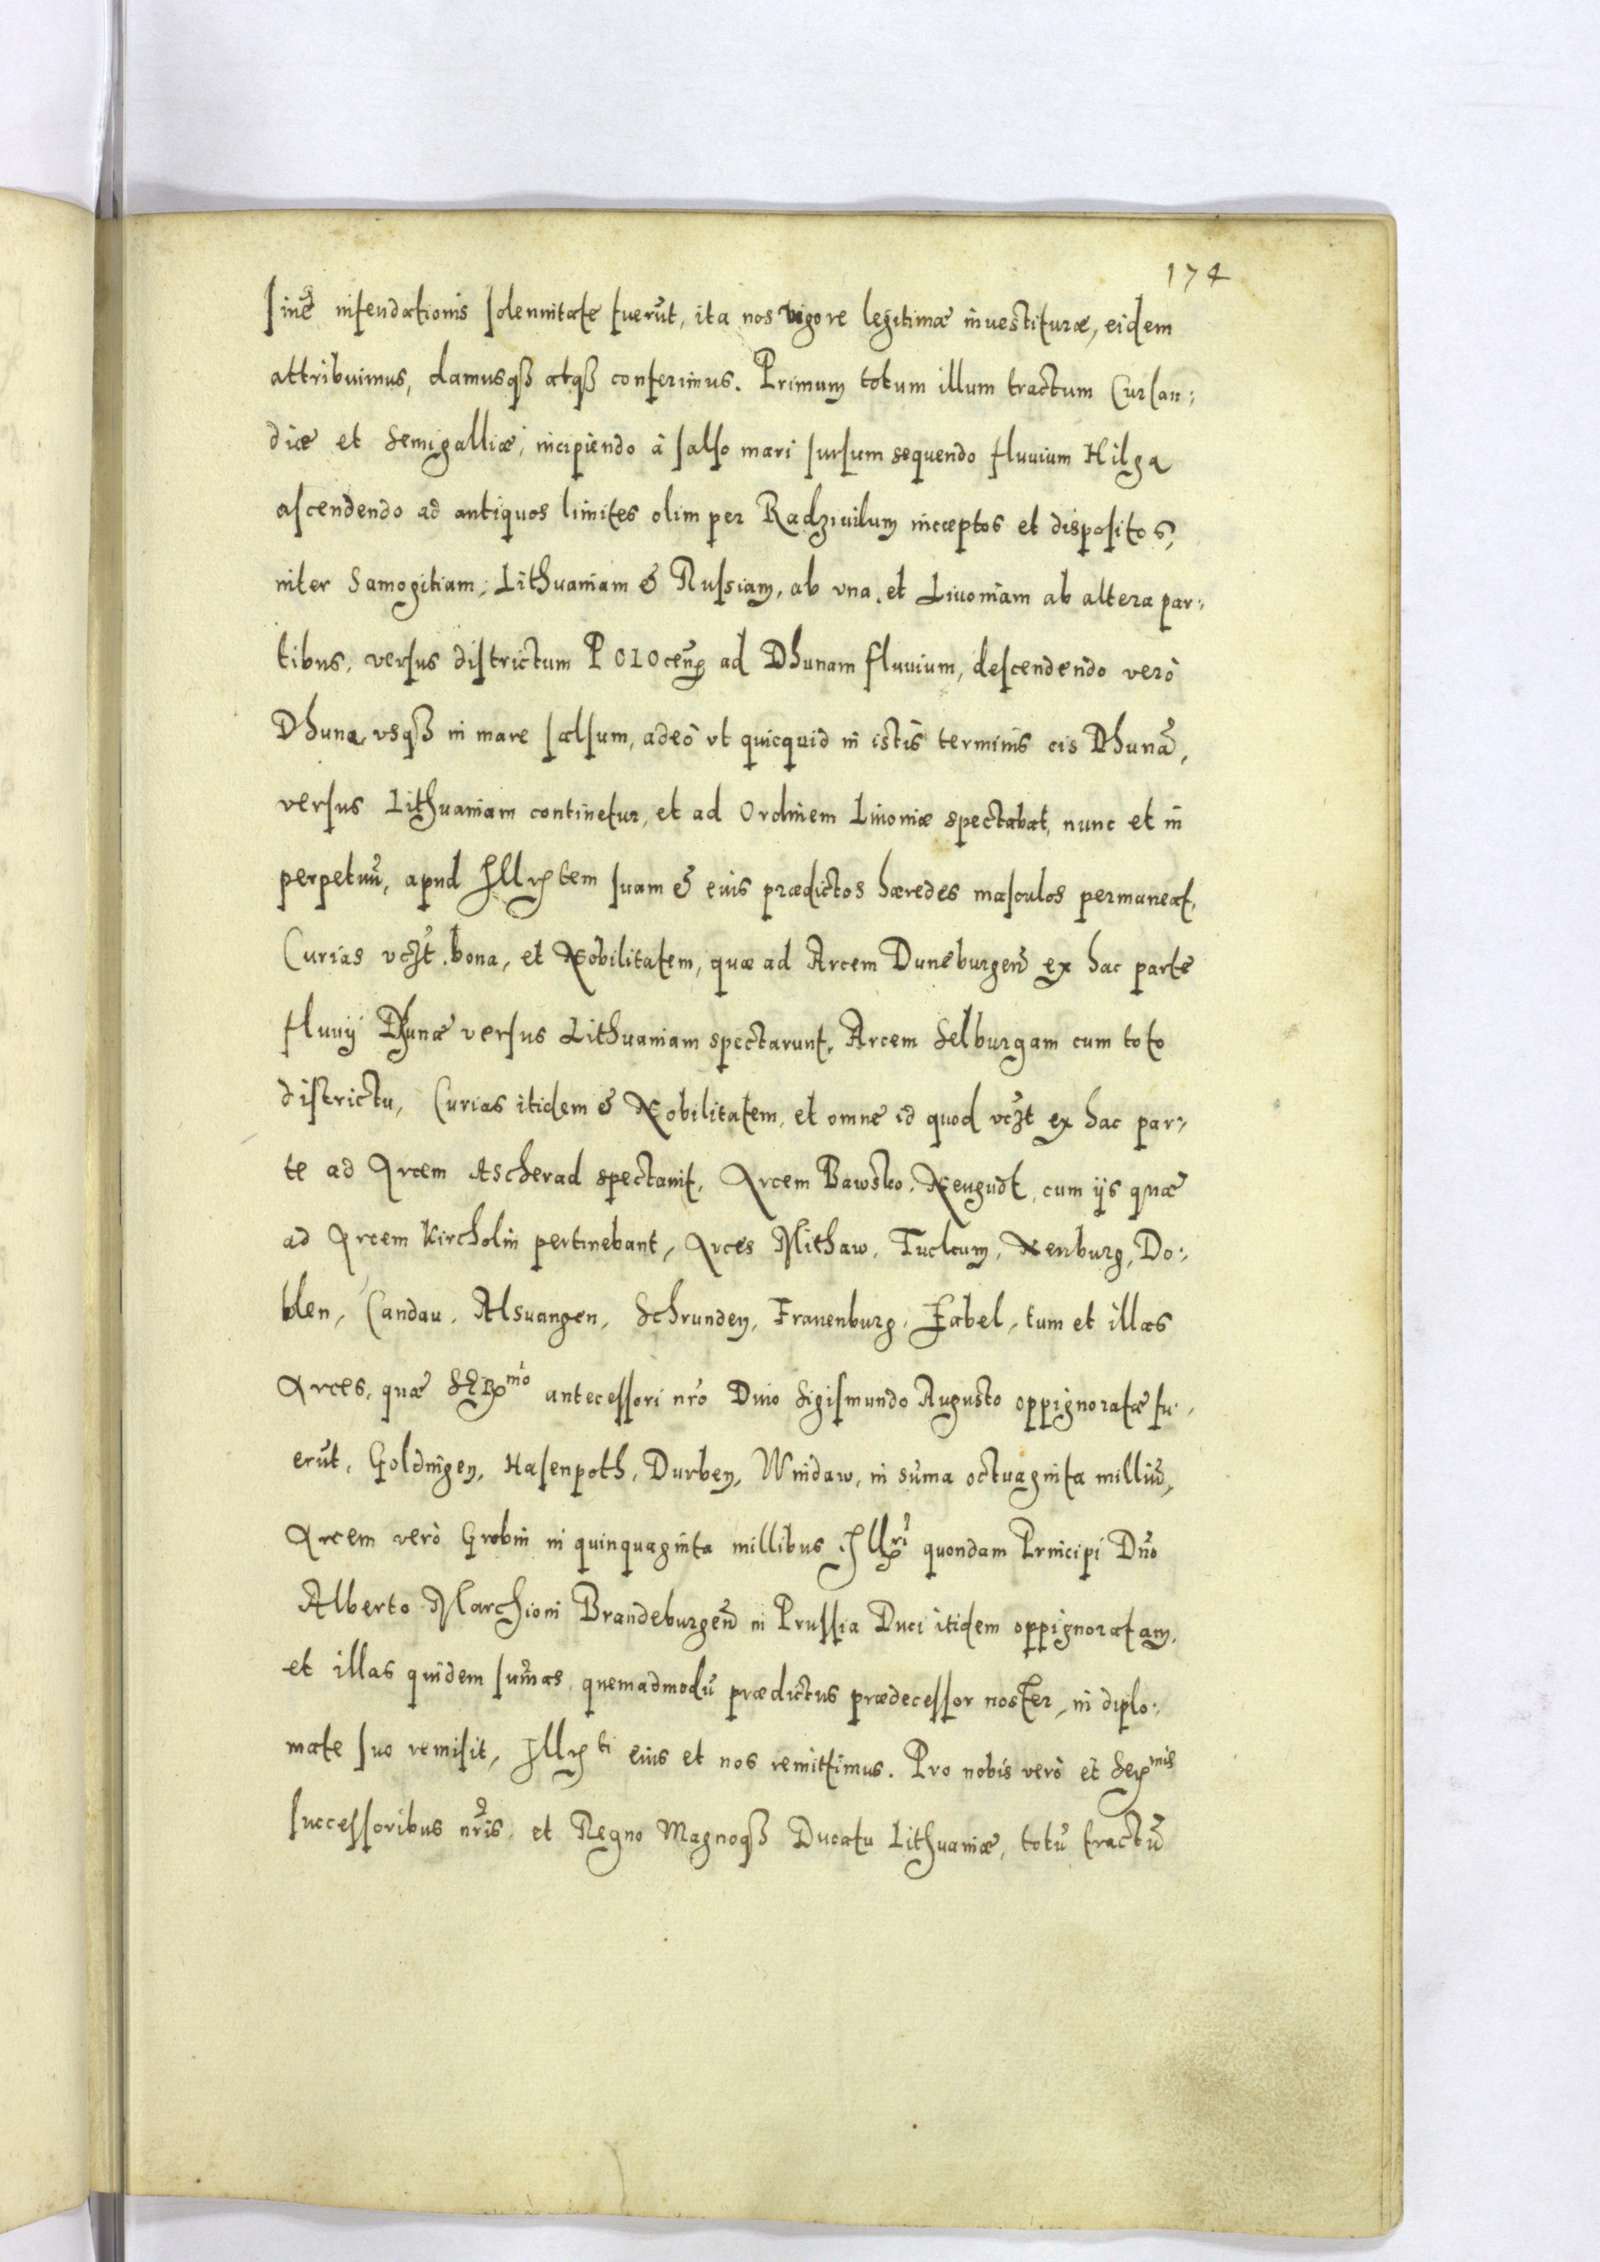 174
sine infeudationis solennitate fuerūt, ita nos vigore legitimæ investituræ, eidem
attribuimus, damusqȝ atqȝ conferimus. Primum totum illum tractum Curlan:
diæ et Semigalliæ, incipiendo à salso mari sursum sequendo fluvium Hilga
ascendendo ad antiquos limites olim per Radziuilum inceptos et dispositos,
inter Samogitiam, Lithuaniam & Russiam, ab vna, et Liuoniam ab altera par:
tibus, versus districtum Poloceñ ad Dhunam fluuium, descendendo verò
Dhuna vsqȝ in mare salsum, adeò vt quicquid in istis terminis cis Dhunā,
versus Lithuaniam continetur, et ad Ordinem Liuoniæ spectabat, nunc et in
perpetuū, apud Illtem suam & eius prædictos hæredes masculos permaneat,
Curias vczt. bona, et Nobilitatem, quæ ad Arcem Duneburgeñ ex hac parte
fluuij Dhunæ versus Lithuaniam spectarunt, Arcem Selburgam cum toto
districtu, Curias itidem & Nobilitatem, et omne id quod vczt ex hac par:
te ad Arcem Ascherad spectauit, Arcem Bawsko, Neugudt, cum ijs quæ
ad Arcem Kircholm pertinebant, Arces Mithaw, Tuckum, Nenburg, Do:
blen, Candau, Alsuangen, Schrunden, Frauenburg, Zabel, tum et illas
Arces, quæ Sermo antecessori nr̄o Diuo Sigismundo Augusto oppignoratæ fu:
erūt, Goldingen, Hasenpoth, Durben, Windaw, in sūma octuaginta milliū,
Arcem verò Grobin in quinquaginta millibus Illri quondam Principi Dño
Alberto Marchioni Brandeburgeñ in Prussia Duci itidem oppignoratam,
et illas quidem sum̄as, quemadmodū prædictus prædecessor noster, in diplo:
mate suo remisit, Illti eius et nos remittimus. Pro nobis verò et Sermis
successoribus nr̄is, et Regno Magnoqȝ Ducatu Lithuaniæ, totū tractū